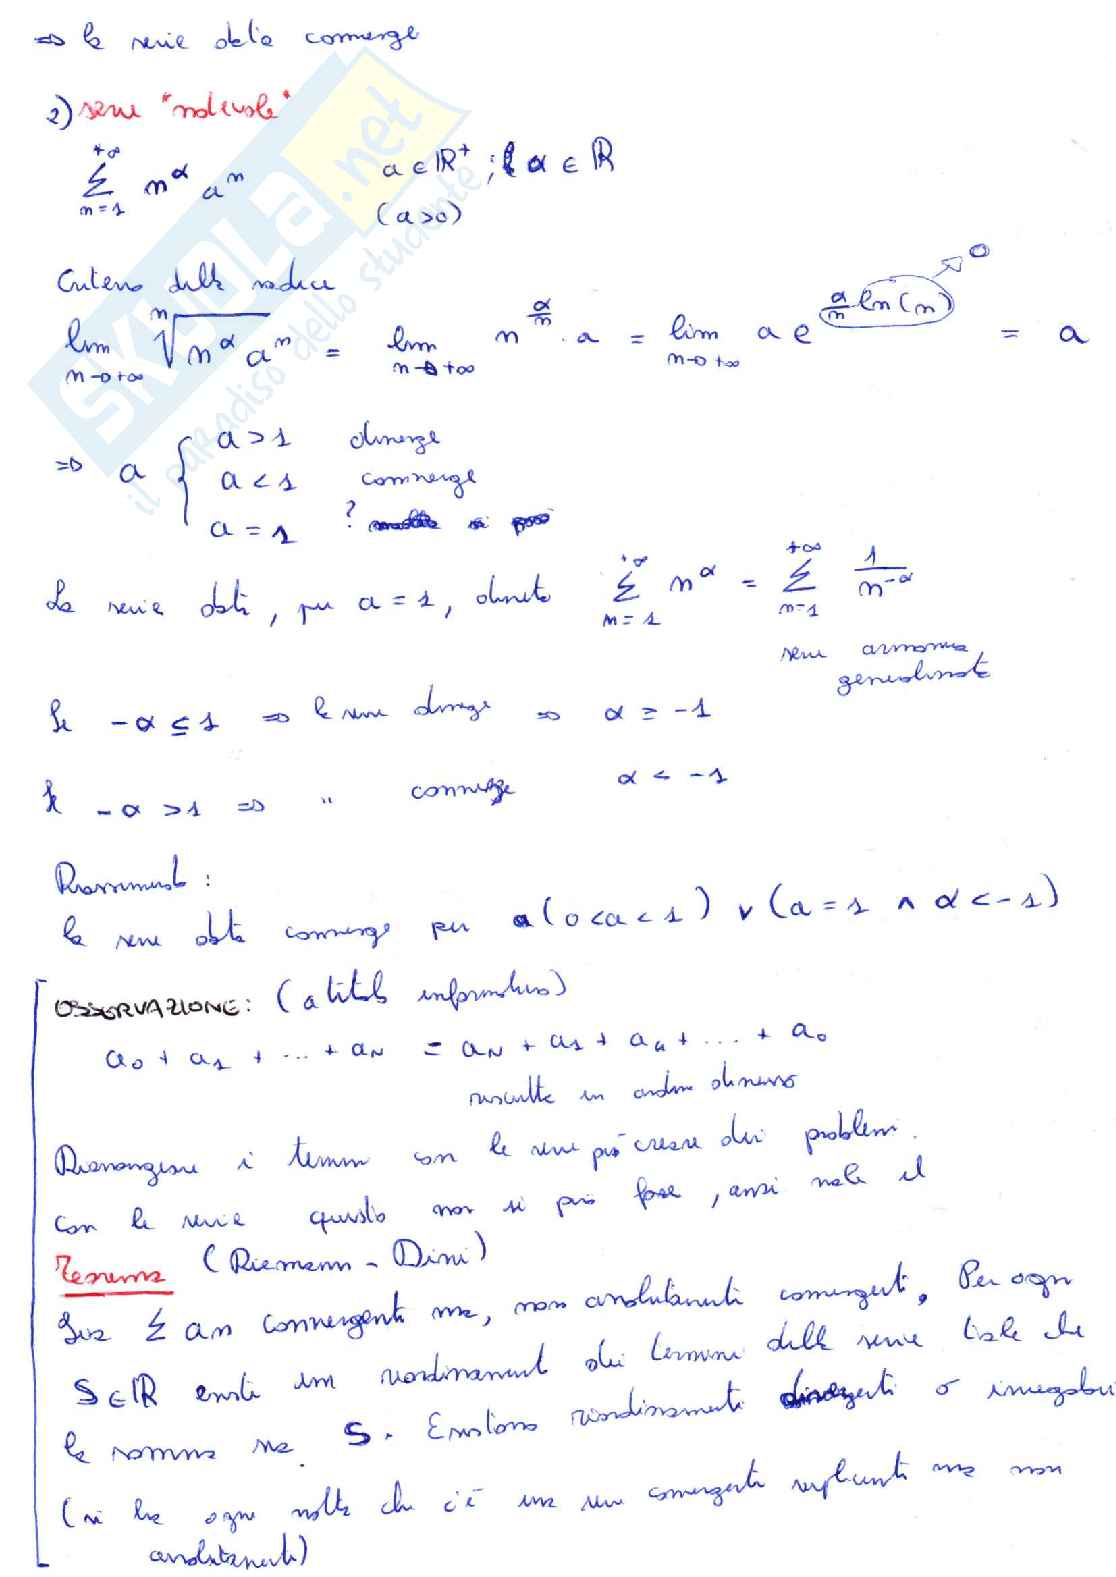 ⇒ la serie data converge
2) serie "notevole"
+∞ ∑ n=1 n^α a^n a ∈ ℝ⁺ ; α ∈ ℝ
(a>0)
Criterio della radice
lim n→+∞ ⁿ√(n^α a^n) = lim n→+∞ n^(α/n) · a = lim n→+∞ a e^(α/n ln(n)) → 0 = a
⇒ a { a > 1 diverge
a < 1 converge
a = 1 ?
La serie data, per a = 1, diventa +∞ ∑ n=1 n^α = +∞ ∑ n=1 1/n^-α
serie armonica
generalizzata
Se -α ≤ 1 ⇒ la serie diverge ⇒ α ≥ -1
Se -α > 1 ⇒ " converge α < -1
Riassumendo :
la serie data converge per (0<a<1) ∨ (a = 1 ∧ α < -1)
OSSERVAZIONE: (a titolo informativo)
a₀ + a₁ + ... + a_N = a_N + a₁ + a₄ + ... + a₀
riscritta in ordine diverso
Riarrangiare i termini con le serie può creare dei problemi.
Con le serie questo non si può fare, anzi vale il
Teorema (Riemann - Dini)
Sia ∑ an convergente ma, non assolutamente convergente. Per ogni
S ∈ ℝ esiste un riordinamento dei termini della serie tale che
la somma sia S. Esistono riordinamenti divergenti o irregolari
(si ha ogni volta che c'è una serie convergente semplicemente ma non
assolutamente)
il paradiso dello studente
SKUOLA.net